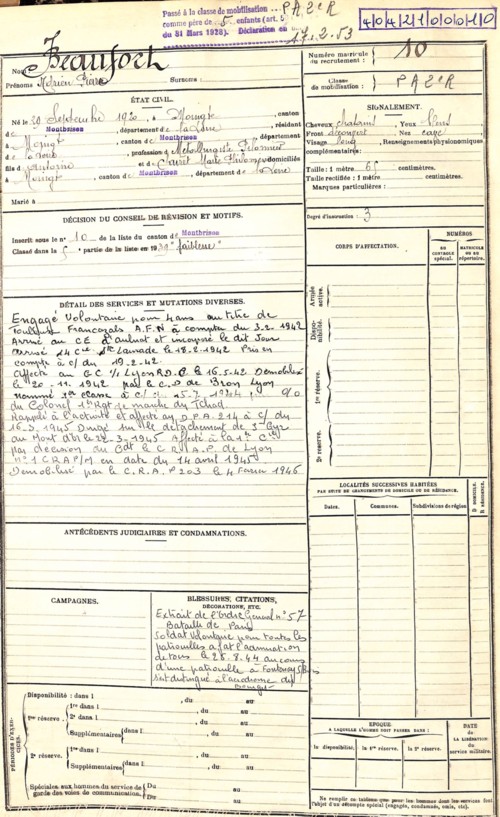 Passé à la classe de mobilisation PA2eR
comme père de 5 enfants (art. 5
du 31 Mars 1928). Déclaration du 17.2.53
Beaufort
Nom
Prénoms Adrien Pierre Surnoms :
Numéro matricule du recrutement : 10
Classe de mobilisation : PA2eR
ÉTAT CIVIL.
Né le 29 Septembre 1920, à, canton
de Montbrison, département de la Loire, résidant
à, canton de Montbrison, département
de la Loire, profession de Métallurgiste
fils d'Antoine et de Marie domiciliés
à, canton de Montbrison, département de la Loire
Marié à
SIGNALEMENT.
Cheveux chatains Yeux bleus
Front découvert Nez
Visage long, Renseignements physionomiques
complémentaires :
Taille : 1 mètre 65 centimètres.
Taille rectifiée : 1 mètre centimètres.
Marques particulières :
Degré d'instruction : 3
DÉCISION DU CONSEIL DE RÉVISION ET MOTIFS.
Inscrit sous le n° 10 de la liste du canton de Montbrison
Classé dans la 5 partie de la liste en 19 "faiblesse"
CORPS D'AFFECTATION.
NUMÉROS
AU CONTROLE spécial.
MATRICULE OU AU répertoire.
Armée active.
Disponibilité.
1re réserve.
2e réserve.
DÉTAIL DES SERVICES ET MUTATIONS DIVERSES.
Engagé Volontaire pour 4 ans au titre de
Français A.F.N à compter du 3.2.1942
Arrivé au CE d'aulnat et incorporé le dit jour
le 18.2.1942 Pris en
compte à c/ du 19.2.42.
Affecté au G C Lyon R.D. le 16.5.42 Démobilisé
le 20.11.1942 par le C. D de Bron Lyon
Nommé 1re classe à c/
du Colonel 1er Rgt de marche du Tchad
Rappelé à l'activité et affecté au D.P.A. 214 à c/ du
16.3.1945 Dirigé sur le détachement de
au Mont d'Or le 22-3-1945 Affecté à la 1re Cie
par décision du Cdt le C R A.P. de Lyon
n° 1 CRAP/M en date du 14 avril 1945
Démobilisé par le C.R.A.P 203 le 4 Fevrier 1946
LOCALITÉS SUCCESSIVES HABITÉES
PAR SUITE DE CHANGEMENTS DE DOMICILE OU DE RÉSIDENCE.
Dates.
Communes.
Subdivisions de région
D DOMICILE.
R RÉSIDENCE.
ANTÉCÉDENTS JUDICIAIRES ET CONDAMNATIONS.
CAMPAGNES.
BLESSURES, CITATIONS,
DÉCORATIONS, ETC.
Extrait de l'Ordre General n° 57
Bataille de Paris
Soldat Volontaire pour toutes les
patrouilles a fait l'admiration
de tous le 25.8.44 au cours
d'une patrouille à Fontenay s/Bois
S'est distingué à l'aérodrome du
Bourget
PÉRIODES D'EXERCICES.
Disponibilité : dans l , du au
1re réserve. 1re dans l , du au
2e dans l , du au
Supplémentaires dans l , du au
2e réserve. 1re dans l , du au
Supplémentaires dans l , du au
Spéciales aux hommes du service de
garde des voies de communication. Du au
Du au
EPOQUE
A LAQUELLE L'HOMME DOIT PASSER DANS :
la disponibilité.
la 1re réserve.
la 2e réserve.
DATE
DE LA LIBÉRATION
du
service militaire.
Ne remplir ce tableau que pour les hommes dont les services font
l'objet d'un décompte spécial (engagés, condamnés, omis, etc).